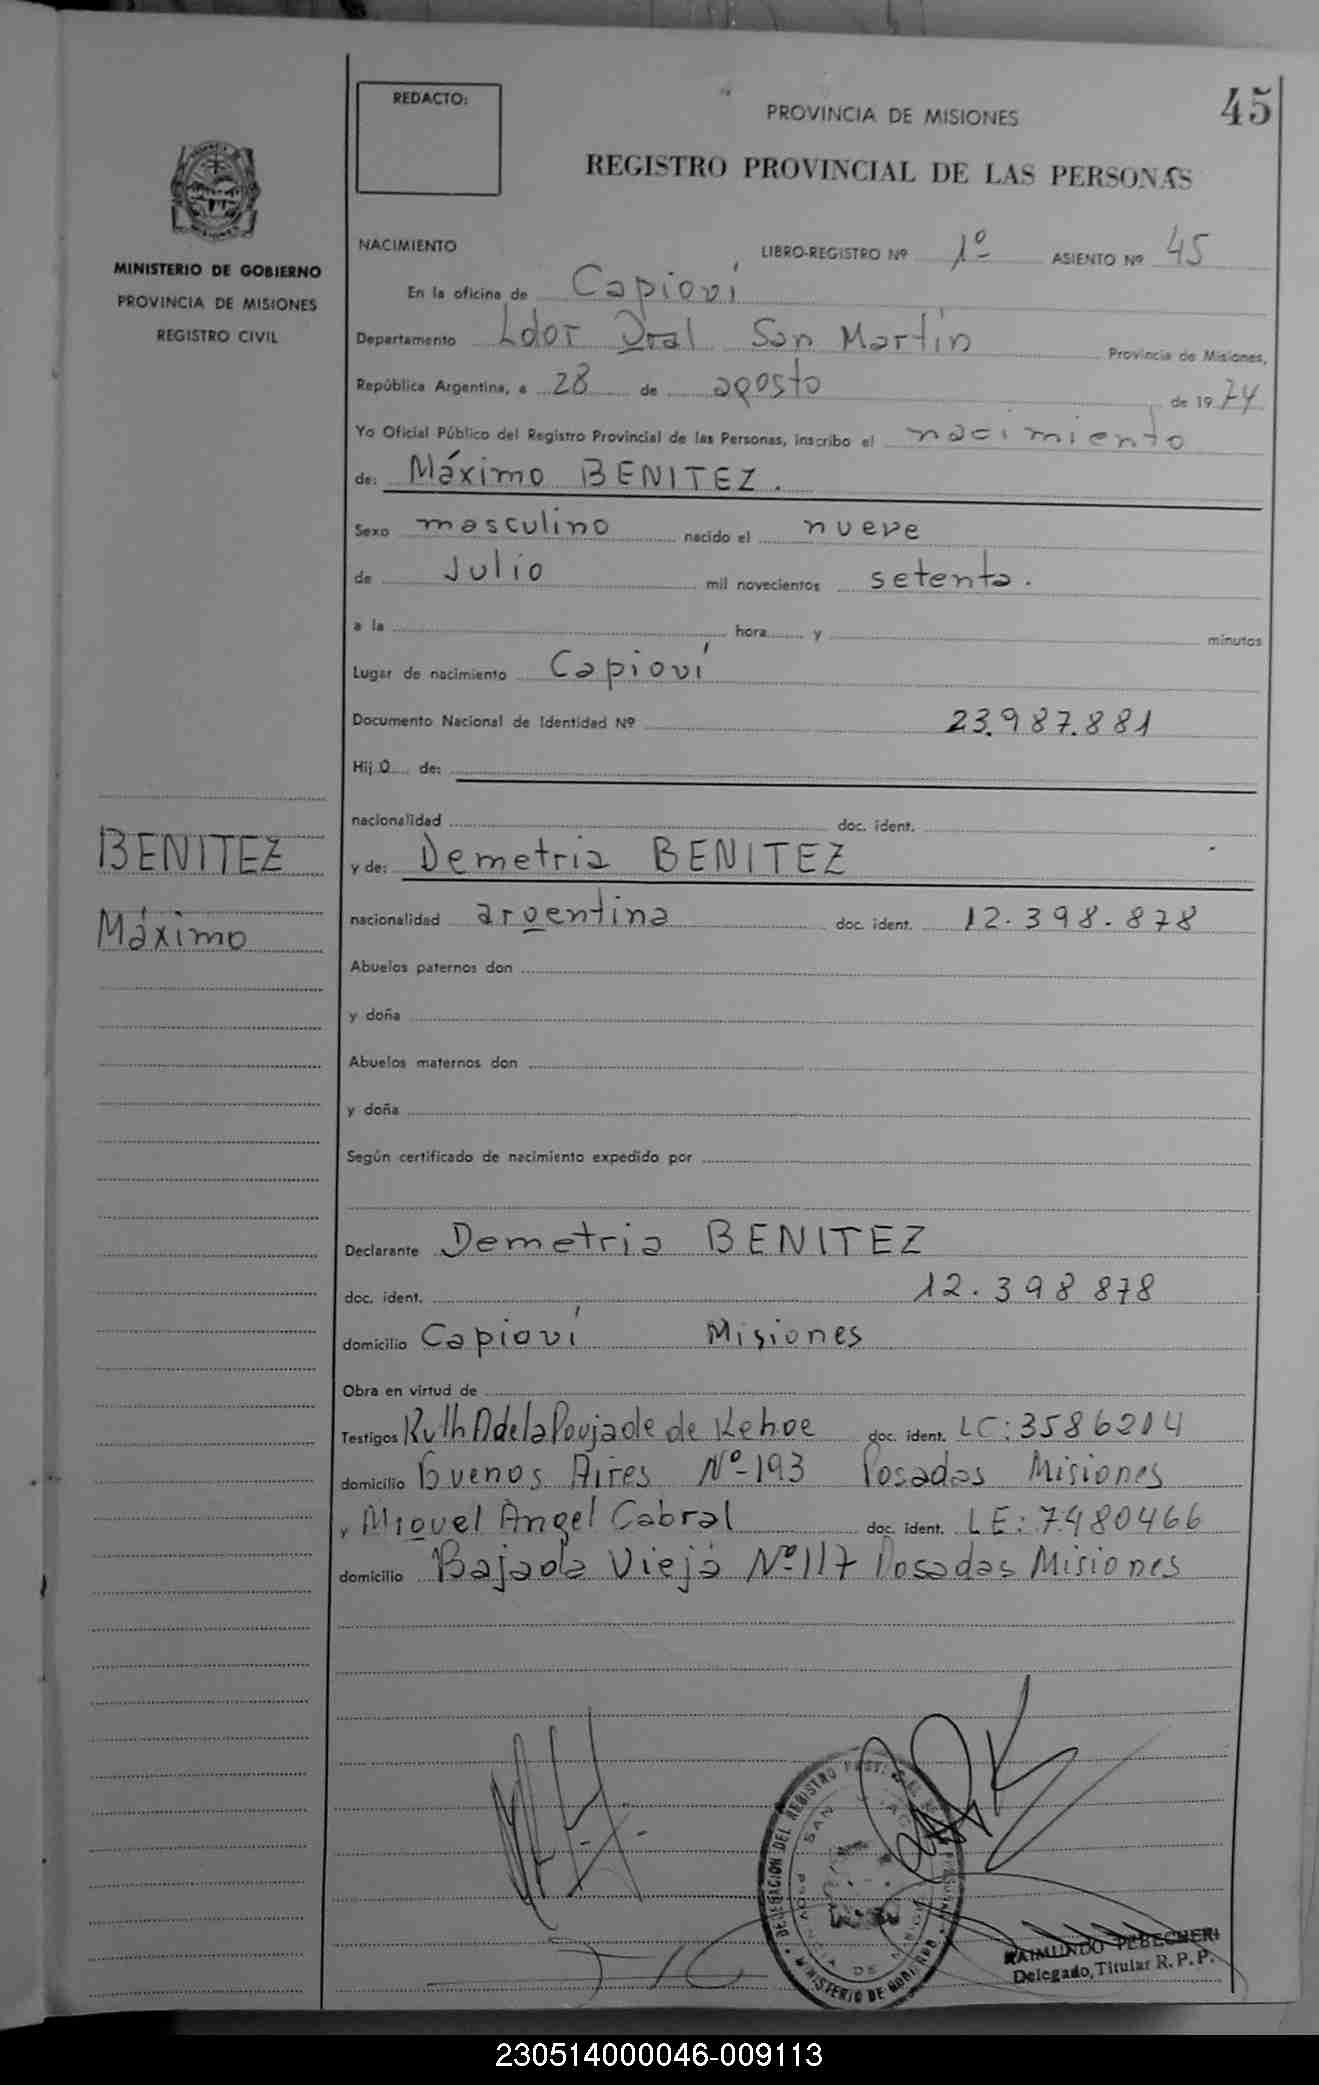 45
REDACTO:
PROVINCIA DE MISIONES
REGISTRO PROVINCIAL DE LAS PERSONAS
MINISTERIO DE GOBIERNO
PROVINCIA DE MISIONES
REGISTRO CIVIL
NACIMIENTO LIBRO-REGISTRO Nº 1º ASIENTO Nº 45
En la oficina de Capioví
Departamento Ldor Gral San Martín Provincia de Misiones,
República Argentina, a 28 de agosto de 1974
Yo Oficial Público del Registro Provincial de las Personas, inscribo el nacimiento
de: Máximo BENITEZ.
Sexo masculino nacido el nueve
de Julio mil novecientos setenta.
a la hora y minutos
Lugar de nacimiento Capioví
Documento Nacional de Identidad Nº 23.987.881
Hij o de:
nacionalidad doc. ident.
BENITEZ
y de: Demetria BENITEZ
Máximo
nacionalidad argentina doc. ident. 12.398.878
Abuelos paternos don
y doña
Abuelos maternos don
y doña
Según certificado de nacimiento expedido por
Declarante Demetria BENITEZ
doc. ident. 12.398 878
domicilio Capioví Misiones
Obra en virtud de
Testigos Ruth Adela Poujade de Kehoe doc. ident. LC: 3586204
domicilio Buenos Aires Nº 193 Posadas Misiones
y Miguel Angel Cabral doc. ident. LE: 7480466
domicilio Bajada Vieja Nº 117 Posadas Misiones
DELEGACION DEL REGISTRO
MINISTERIO DE GOBIERNO
RAIMUNDO
Delegado Titular R. P. P.
230514000046-009113